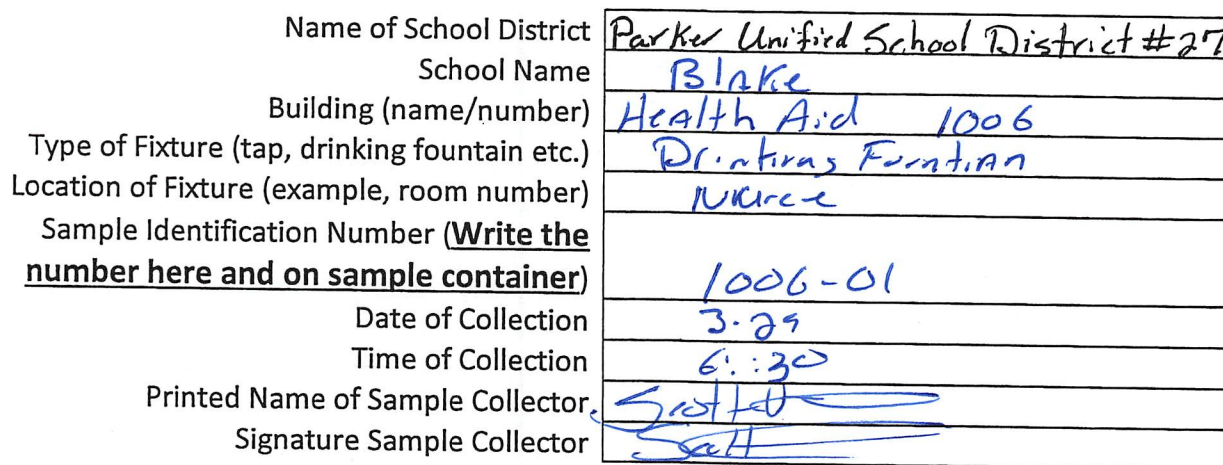 Name of School District Parker Unified School District #27
School Name Blake
Building (name/number) Health Aid 1006
Type of Fixture (tap, drinking fountain etc.)
Location of Fixture (example, room number)
Sample Identification Number (Write the
number here and on sample container) 1006-01
Date of Collection 3.29
Time of Collection 6::30
Printed Name of Sample Collector
Signature Sample Collector